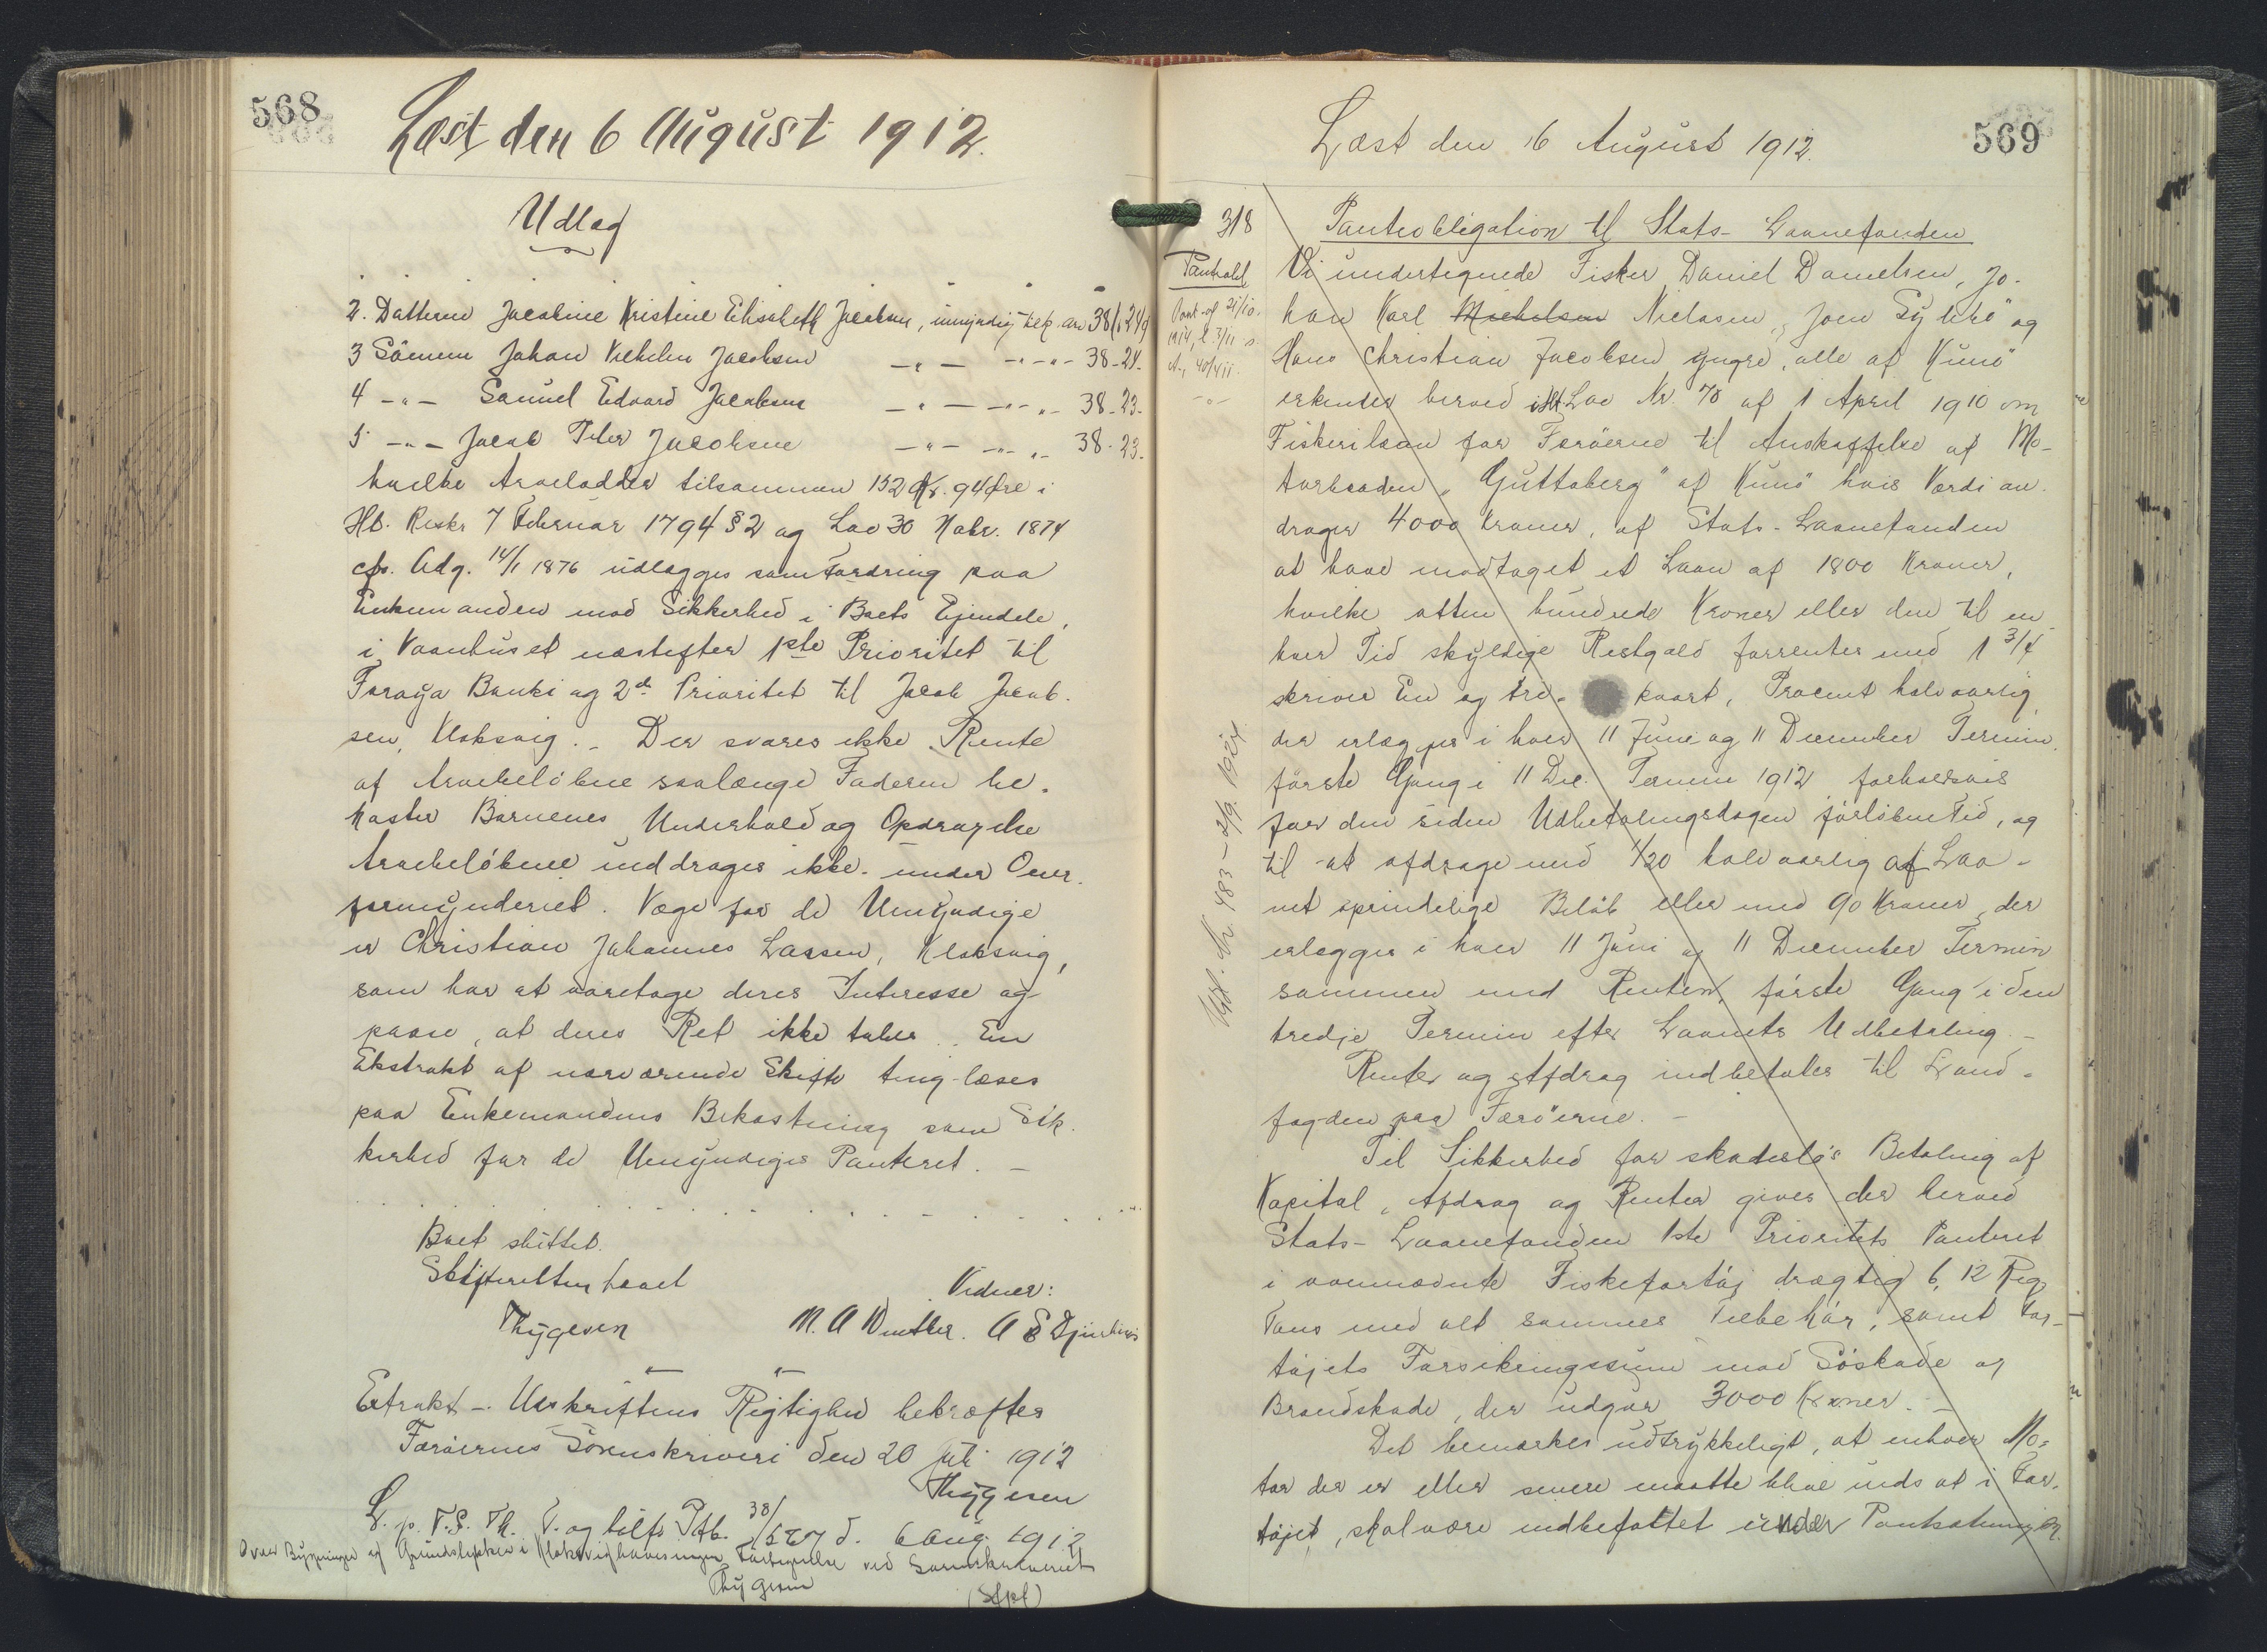 568
Læst den 6 August 1912.
Udlag
2. Datteren Jacobine Kristine Elisabeth Jacobsen, umyndig Arv 38 Kr 24
3 Sönnen Johan Vilhelm Jacobsen -"- -"- 38-24.
4 -"- Samuel Edvard Jacobsen -"- -"- 38-23-
5 -"- Jacob Peter Jacobsen -"- -"- 38-23-
hvilke Arvelodder tilsammen 152 Kr. 94 Øre i
Hb. Reskr 7 Februar 1794 § 2 og Lov 30 Nobr. 1874
cfr. Adg. 14/1 1876 udlægges som Fordring paa
Enkemanden mod Sikkerhed i Boets Ejendele,
i Vaanhuset næstefter 1ste Prioritet til
Føroya Banki og 2d Prioritet til Jacob Jacob-
sen, Klaksvig. - Der svares ikke Rente
af Arvebelöbene saalænge Faderen be-
koster Børnenes Underhold og Opdragelse
Arvebelöbene inddrages ikke under Over-
formynderiet. Værge for de Umyndige
er Christian Johannes Lassen, Klaksvig,
som har at varetage deres Interesse og
paase, at deres Ret ikke tabes. En
Ekstrakt af nærværende Skifte ting-læses
paa Enkemandens Bekostning som Sik-
kerhed for de Umyndiges Panteret. -
Boet sluttet.
Skifteretten hævet
Vidner:
Thygesen M. A Winther. A S Djurhuus
Extrakt - Udskriftens Rigtighed bekræftes
Færöernes Sorenskriveri den 20 Juli 1912
Thygesen
L. p. T. S. Th. V. og tilf. Ptb. 38/567 d. 6 Aug. 1912
Over Bygninger af Grundstykker i Klaksvig haves ingen Fortegnelse ved Sorenskriveriet
Thygesen
569
Læst den 6 August 1912.
318
Pantobligation til Stats-Laanefonden
Panthold
Pant-obl 21/10.
1914, l. 3/11 s.
A, 40/411.
-"-
Vi undertegnede Fisker Daniel Danielsen, Jo-
han Karl Michelsen Nielasen, Joen Sykkö og
Hans Christian Jacobsen yngre, alle af Kunö
erkender herved iflt Lov Nr. 78 af 1 April 1910 om
Fiskerilaan for Færöerne til Anskaffelse af Mo-
torbaaden "Guttaberg" af Kunö hvis Værdi an-
drager 4000 Kroner, af Stats-Laanefonden
at have modtaget et Laan af 1800 Kroner,
hvilke atten hundrede Kroner eller den til en-
hver Tid skyldige Restgæld forrentes med 1 3/4
skriver En og tre- kvart, Procent halvaarlig,
der erlægges i hver 11 Juni og 11 December Termin,
første Gang i 11 Dec. Termin 1912 forholdsvis
for den siden Udbetalingsdagen forløbne Tid, og
til at afdrage med 1/20 halvaarlig af Laa-
net oprindelige Beløb eller med 90 Kroner, der
erlægges i hver 11 Juni og 11 December Termin
sammen med Renten, første Gang i den
tredje Termin efter Laanets Udbetaling. -
Renter og Afdrag indbetales til Land-
fogden paa Færöerne. -
Til Sikkerhed for skadesløs Betaling af
Kapital, Afdrag og Renter gives der herved
Stats-Laanefonden 1ste Prioritets Panteret
i ovennævnte Fiskefartøj drægtig 6,12 Reg
Tons med alt sammes Tilbehør, samt Far-
tøjets Forsikringssum mod Søskade og
Brandskade, der udgør 3000 Kroner. -
Det bemærkes udtrykkeligt, at enhver Mo-
tor der er eller senere maatte blive indsat i Far-
tøjet, skal være indbefattet under Pantsætningen.
Udsl. A 483 - 2/9. 1924